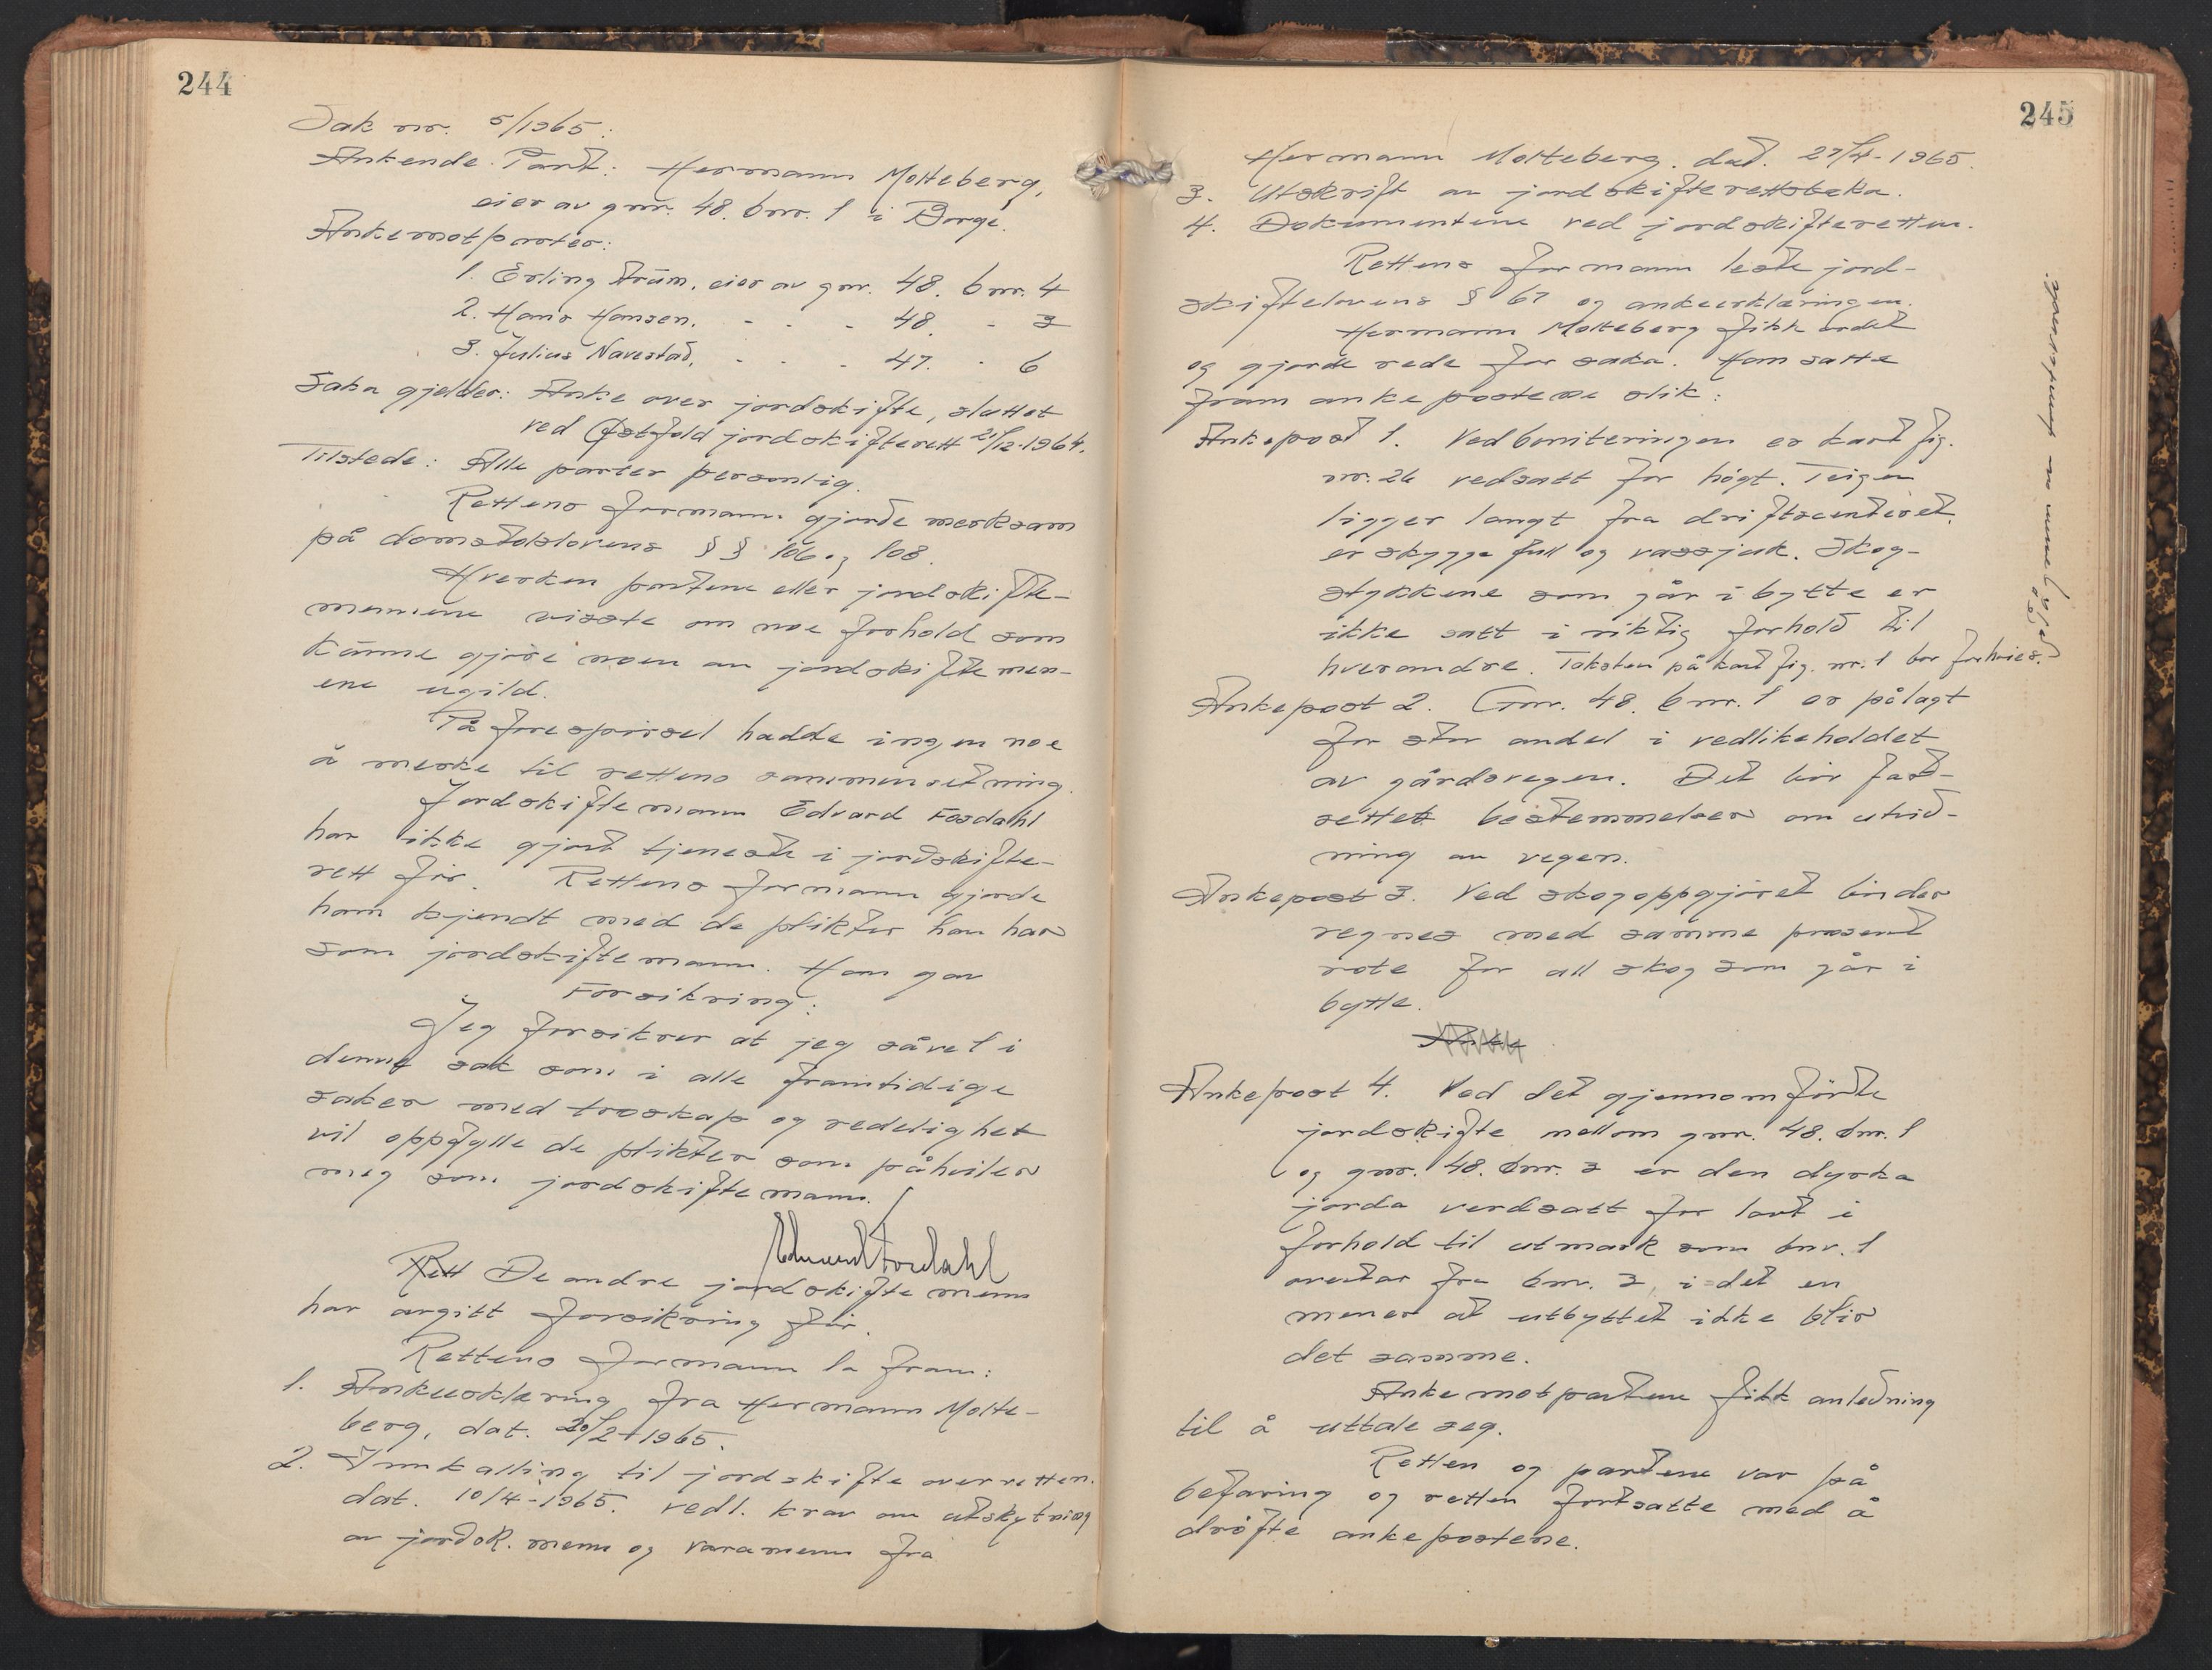 244
Sak nr. 5/1965:
Ankende Part: Hermann Molteberg,
eier av gnr. 48. bnr. 1 i Borge.
Ankemotparter:
1. Erling Strøm, eier av gnr. 48. bnr. 4
2. Hans Hansen. - - - 48. - 3
3. Julius Navestad. - - - 47. - 6
Saka gjelder: Anke over jordskifte, sluttet
ved Østfold jordskifterett 21/12-1964.
Tilstede: Alle parter personlig.
Rettens formann gjorde merksam
på domstolslovens §§ 106 og 108.
Hverken partene eller jordskifte-
mennene visste om noe forhold som
kunne gjøre noen av jordskiftemen-
ene ugild.
På forespørsel hadde ingen noe
å merke til rettens sammensetning.
Jordskiftemann Edvard Fosdahl
har ikke gjort tjeneste i jordskifte-
rett før. Rettens formann gjorde
ham kjendt med de plikter han har
som jordskiftemann. Han gav
Forsikring:
Jeg forsikrer at jeg såvel i
denne sak som i alle framtidige
saker med troskap og redelighet
vil oppfylle de plikter som påhviler
meg som jordskiftemann.
Edvard Fosdahl
Rett De andre jordskiftemenn
har avgitt forsikring før.
Rettens formann la fram:
1. Ankeerklæring fra Hermann Molte-
berg, dat. 20/2-1965.
2. Innkalling til jordskifteoverretten.
dat. 10/4-1965. vedl. krav om utskytning
av jordsk. menn og varamenn fra
245
Hermann Molteberg. dat. 27/4-1965.
3. Utskrift av jordskifterettsboka.
4. Dokumentene ved jordskifteretten.
Rettens formann leste jord-
skiftelovens § 67 og ankeerklæringen.
Hermann Molteberg fikk ordet
og gjorde rede for saka. Han satte
fram ankepostene slik:
Ankepost 1. Ved boniteringen er kart fig.
nr. 26 verdsatt for høgt. Teigen
ligger langt fra driftscenteret,
er skyggefull og vassjuk. Skog-
stykkene som går i bytte er
ikke satt i riktig forhold til
hverandre. Taksten på kart fig. nr. 1 bør forhøies.
Ankepost 2. Gnr. 48. bnr. 1 er pålagt
for stor andel i vedlikeholdet
av gårdsvegen. Det bør fast-
settet bestemmelser om utvid-
ning av vegen.
Ankepost 3. Ved skogoppgjøret bør der
regnes med samme prosent
rote for all skog som går i
bytte.
Anke
Ankepost 4. Ved det gjennomførte
jordskifte mellom gnr. 48. bnr. 1
og gnr. 48. bnr. 3 er den dyrka
jorda verdsatt for lavt i
forhold til utmark som bnr. 1
avstar fra bnr. 3, i det en
mener at utbyttet ikke blir
det samme.
Ankemotpartene fikk anledning
til å uttale seg.
Retten og partene var på
befaring og retten fortsatte med å
drøfte ankepostene.